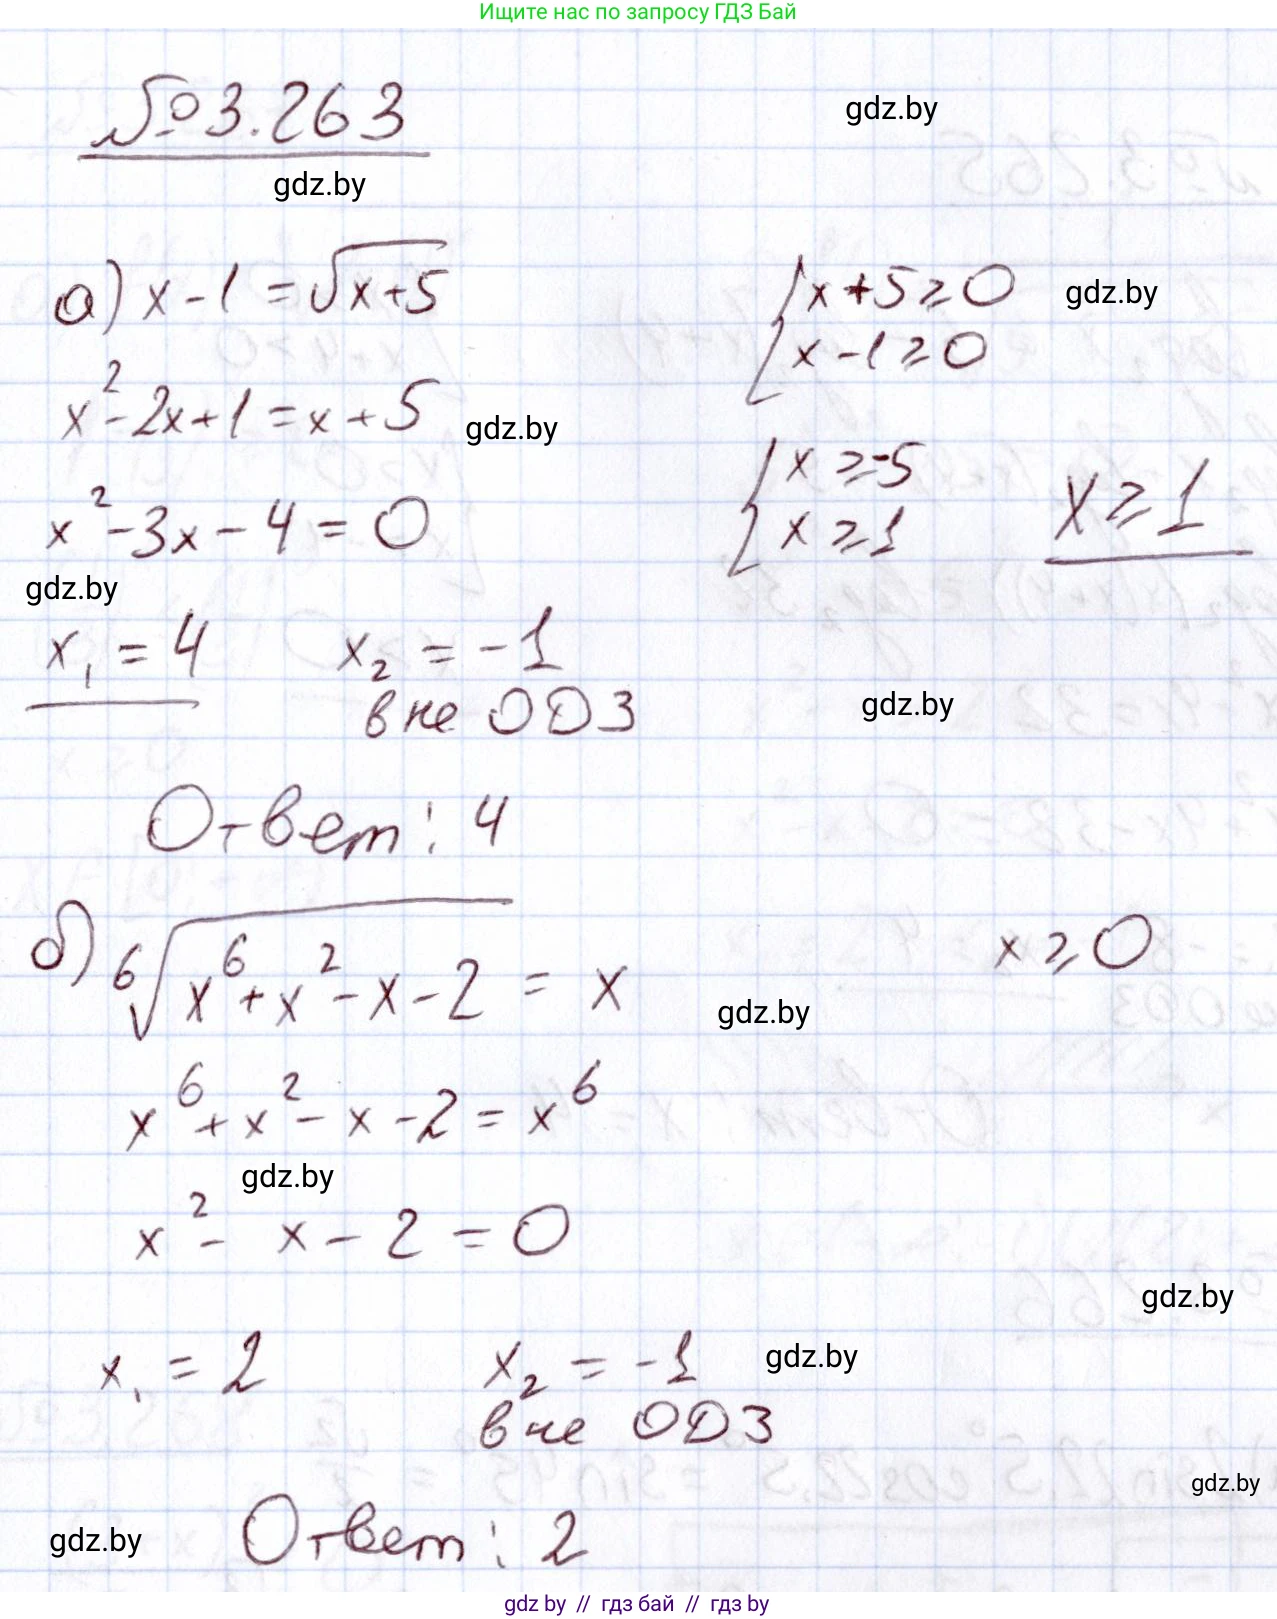 Ищите нас по запросу ГДЗ Бай
№3.263
gdz.by
gdz.by
а) x-1=√x+5
{x+5≥0
x-1≥0
gdz.by
x²-2x+1=x+5
gdz.by
{x≥-5
x≥1
x≥1
x²-3x-4=0
gdz.by
x₁=4
x₂=-1
вне ОДЗ
gdz.by
Ответ: 4
б) ⁶√x⁶+x²-x-2=x
x≥0
gdz.by
x⁶+x²-x-2=x⁶
gdz.by
x²-x-2=0
gdz.by
x₁=2
x₂=-1
gdz.by
вне ОДЗ
gdz.by
gdz.by
Ответ: 2
gdz.by // гдз бай // гдз by